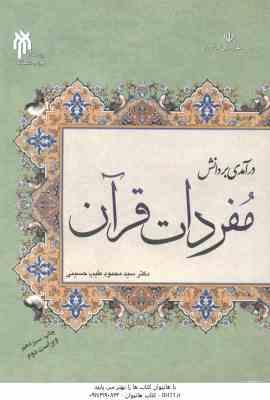 درآمدی بر دانش
مفردات قرآن
دکتر سید محمود طیب حسینی
چاپ سیزدهم
ویراست دوم
با هانیوان کتاب ها را بهتر می یابید
کتاب هانیوان